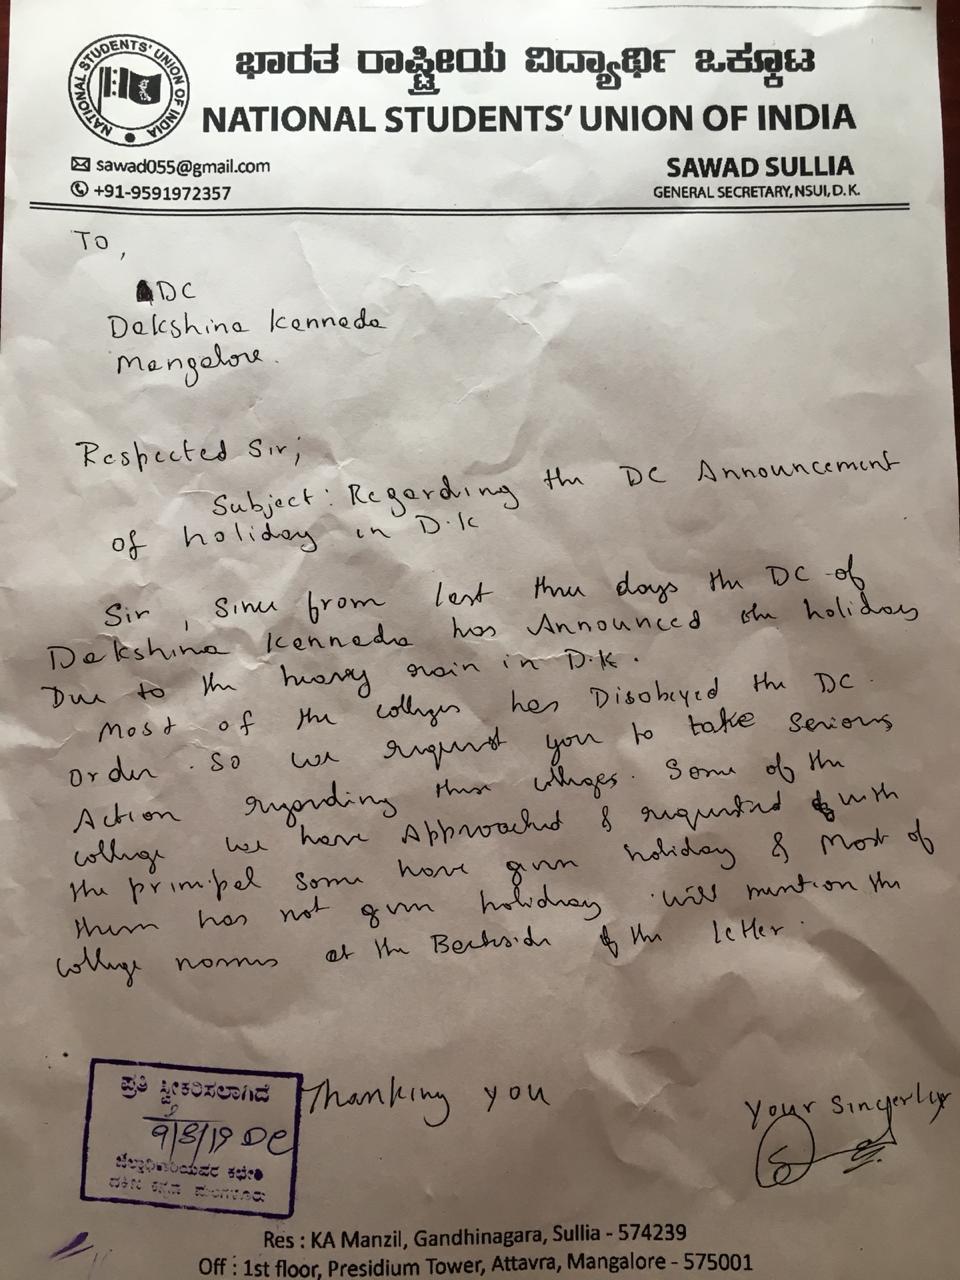 NATIONAL STUDENTS' UNION OF INDIA
ಭಾರತ ರಾಷ್ಟ್ರೀಯ ವಿದ್ಯಾರ್ಥಿ ಒಕ್ಕೂಟ
NATIONAL STUDENTS' UNION OF INDIA
sawad055@gmail.com
+91-9591972357
SAWAD SULLIA
GENERAL SECRETARY, NSUI, D.K.
To,
DC
Dakshina Kannada
Mangalore.
Respected Sir;
Subject: Regarding the DC Announcement
of holiday in D.K
Sir, Since from last three days the DC of
Dakshina Kannada has Announced the holiday
Due to the heavy rain in D.K.
Most of the colleges has Disobeyed the DC
order. So we request you to take serious
Action regarding these colleges. Some of the
college we have Approached & requested with
the principal some have given holiday & Most of
them has not given holiday. Will mention the
college names at the Backside of the letter.
Thanking you
Your Sincerly
ಪ್ರತಿ ಸ್ವೀಕರಿಸಲಾಗಿದೆ
9/8/19 DC
ಜಿಲ್ಲಾಧಿಕಾರಿಯವರ ಕಛೇರಿ
ದಕ್ಷಿಣ ಕನ್ನಡ ಮಂಗಳೂರು
Res : KA Manzil, Gandhinagara, Sullia - 574239
Off : 1st floor, Presidium Tower, Attavra, Mangalore - 575001